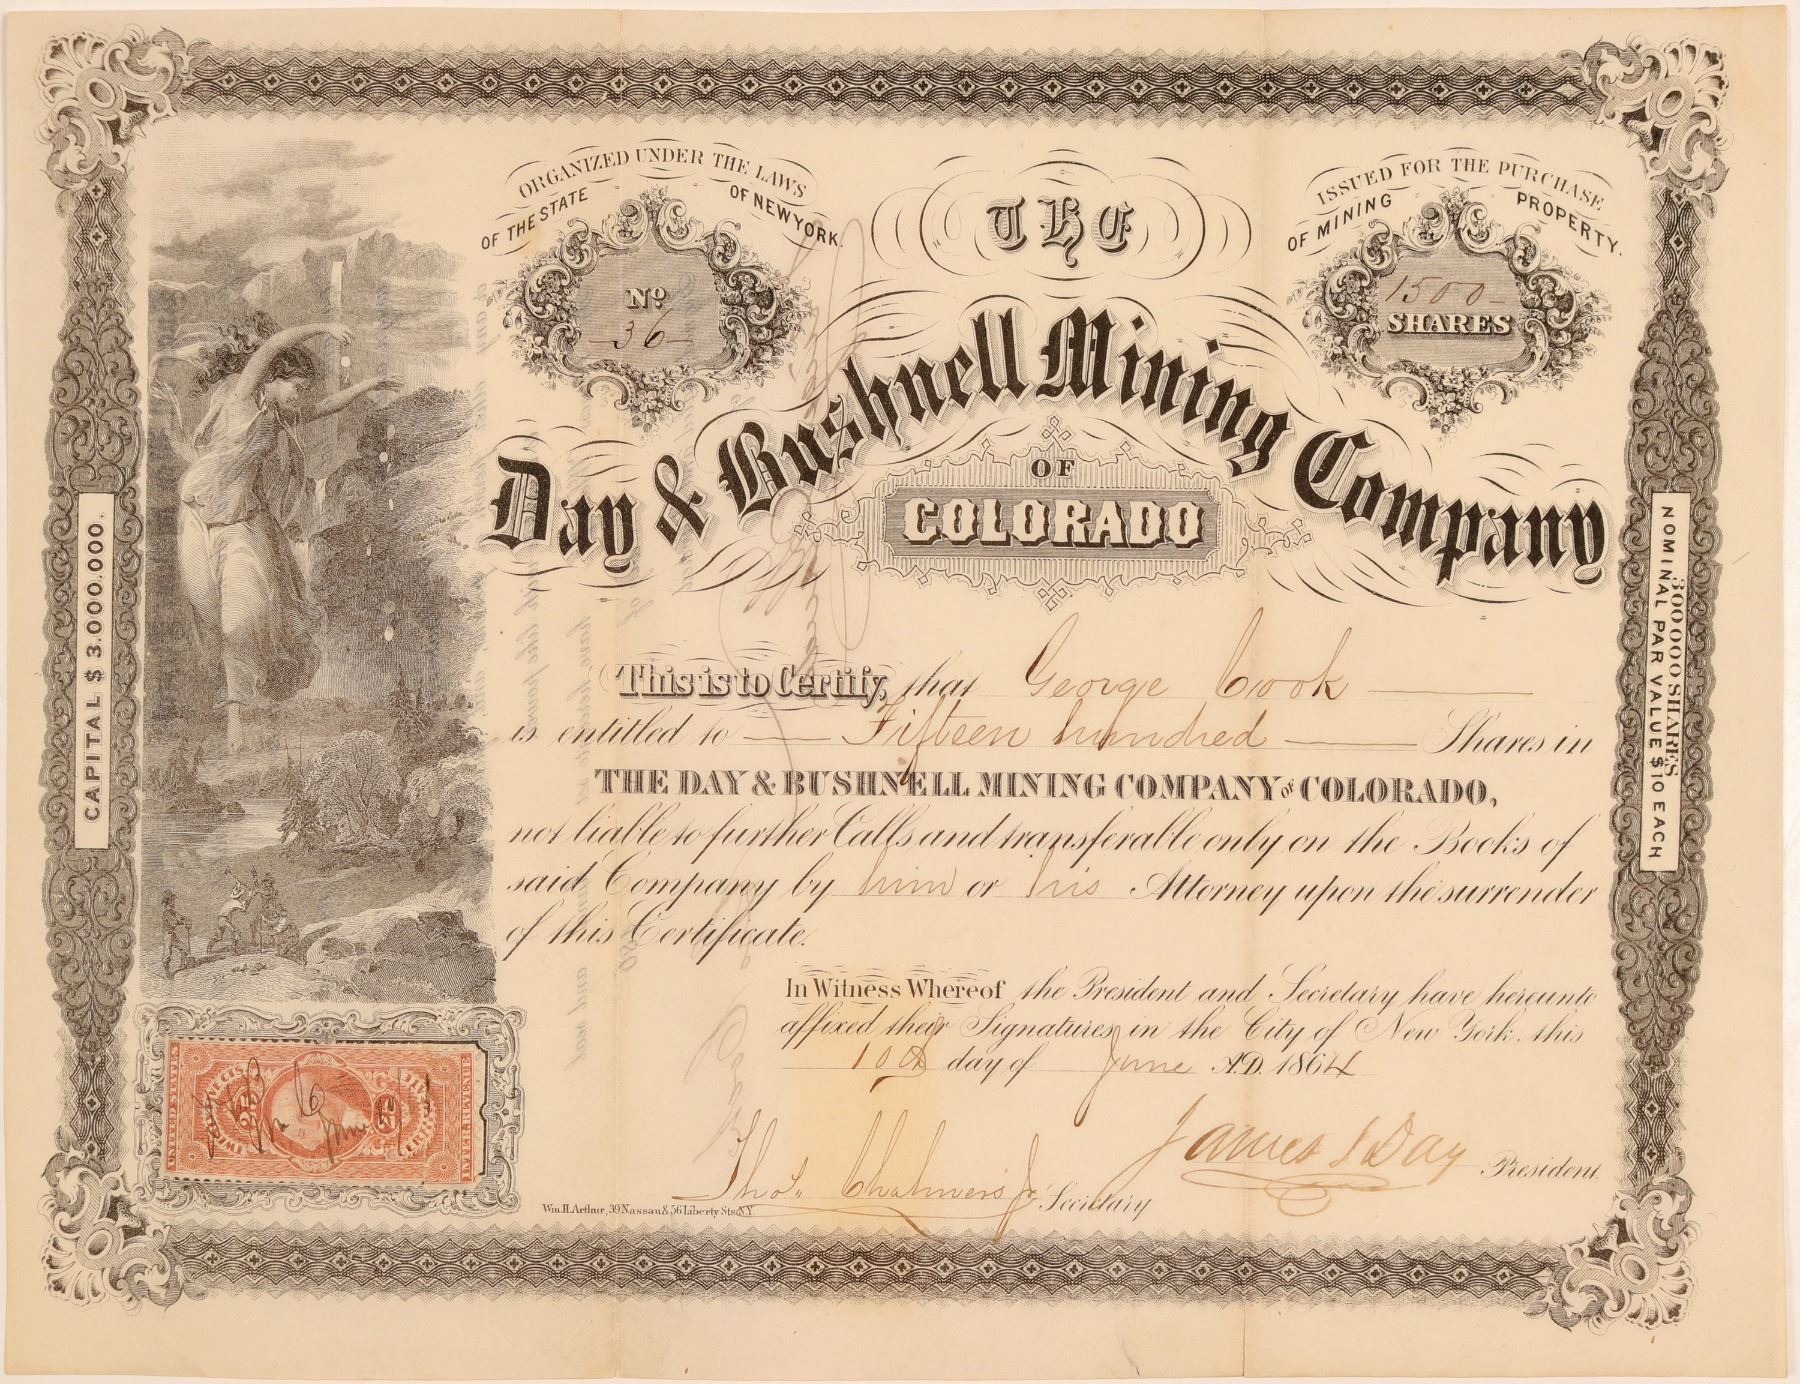 ORGANIZED UNDER THE LAWS
OF THE STATE OF NEW YORK.
No
36
THE
ISSUED FOR THE PURCHASE
OF MINING PROPERTY.
1500
SHARES
Day & Bushnell Mining Company
OF
COLORADO
CAPITAL $3.000.000.
300000 SHARES
NOMINAL PAR VALUE $10 EACH
This is to Certify, that George Cook
is entitled to Fifteen hundred Shares in
THE DAY & BUSHNELL MINING COMPANY OF COLORADO,
not liable to further Calls and transferable only on the Books of
said Company by him or his Attorney upon the surrender
of this Certificate.
In Witness Whereof the President and Secretary have hereunto
affixed their Signatures, in the City of New York, this
10th day of June A.D. 1864
Thos. Chalmers Jr Secretary
James I Day President.
Wm. H. Arthur, 39 Nassau & 56 Liberty Sts. N.Y.
UNITED STATES
INTER. REVENUE
25
June